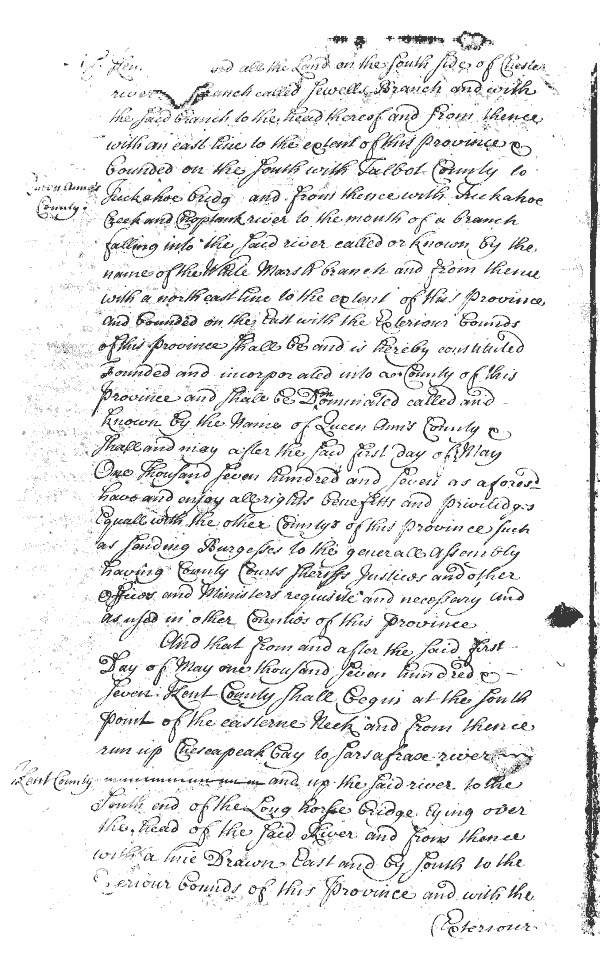 and all the Land on the South side of Chester
river branch called Sewells Branch and with
the said branch to the head thereof and from thence
with an east line to the extent of this Province &
bounded on the South with Talbot County to
Queen Anns
Tuckahoe bridg and from thence with Tuckahoe
County:
Creek and Choptank river to the mouth of a branch
falling into the said river called or known by the
name of the White Marsh branch and from thence
with a north east line to the extent of this Province
and bounded on the East with the Exteriour bounds
of this Province shall be and is hereby constituted
founded and incorporated into a County of this
Province and shall be Denominated called and
known by the Name of Queen Anns County &
shall and may after the said first day of May
One thousand seven hundred and seven as aforesd
have and enjoy all rights benefitts and priviledges
Equall with the other Countys of this Province such
as sending Burgesses to the generall Assembly
having County Courts sheriffs Justices and other
officers and Ministers requisite and necessary and
as used in other Counties of this Province
And that from and after the said first
Day of May one thousand seven hundred &
seven. Kent County shall begin at the South
point of the easterne Neck and from thence
run up Cheseapeak bay to Sarsafrax river
Kent County
and up the said river to the
South end of the Long horse bridge lying over
the head of the said River and from thence
with a line Drawn East and by South to the
Exteriour bounds of this Province and with the
Exteriour